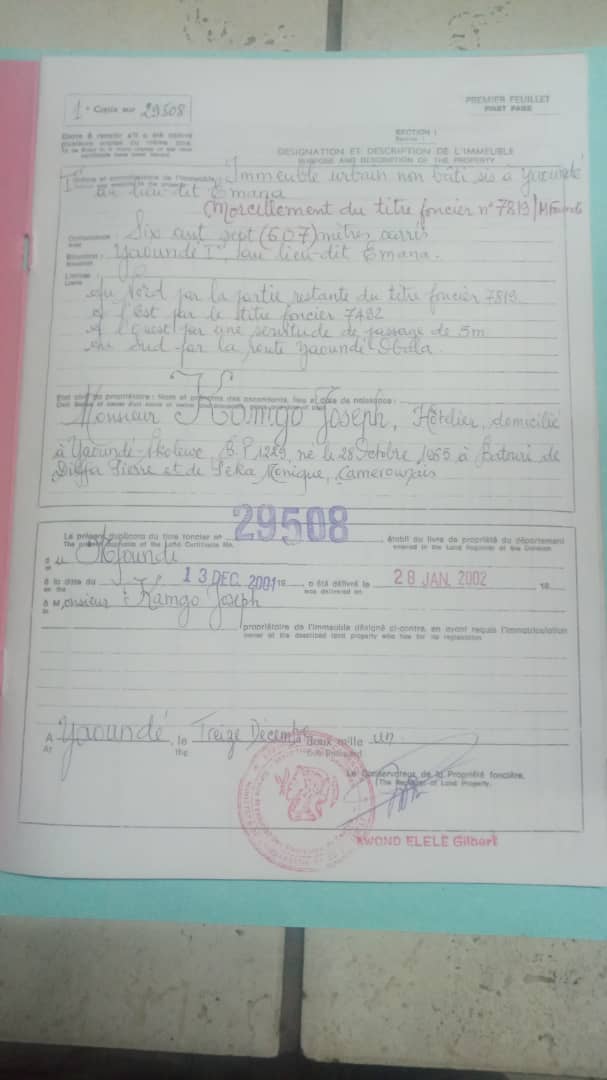 1e Copie sur 29508
PREMIER FEUILLET
FIRST PAGE
SECTION I
DESIGNATION ET DESCRIPTION DE L'IMMEUBLE
PURPOSE AND DESCRIPTION OF THE PROPERTY
Immeuble urbain non bâti sis à Yaoundé
au lieu-dit Emana
(Morcellement du titre foncier n° 7819/Mfoundi
Contenance
Six cent sept (607) mètres carrés
Situation : Yaoundé Ier au lieu-dit Emana.
Limites
Au Nord par la partie restante du titre foncier 7819
A l'est par le titre foncier 7482
A l'Ouest par une servitude de passage de 5m
Au Sud par la route Yaoundé-Obala.
Etat civil du propriétaire : Nom et prénoms des ascendants, lieu et date de naissance :
Monsieur Kamgo Joseph, Hôtelier, domicilié
à Yaoundé B.P 1229, né le 28 Octobre 1965 à Batouri de
Pierre et de Monique, Camerounais
Le présent duplicata du titre foncier n° 29508 établi du livre de propriété du département
The present duplicate of the Land Certificate No. entered in the Land Register of the Division
du Mfoundi
à la date du 13 DEC. 2001 19 a été délivré le 28 JAN. 2002 19
on the was delivered on
à Monsieur Kamgo Joseph
propriétaire de l'immeuble désigné ci-contre, en ayant requis l'immatriculation
owner of the described land property who has for its registration
A Yaoundé, le Treize Décembre deux mille un
At the
Le Conservateur de la Propriété foncière,
(The Registrar of Land Property.
AWOND ELELE Gilbert